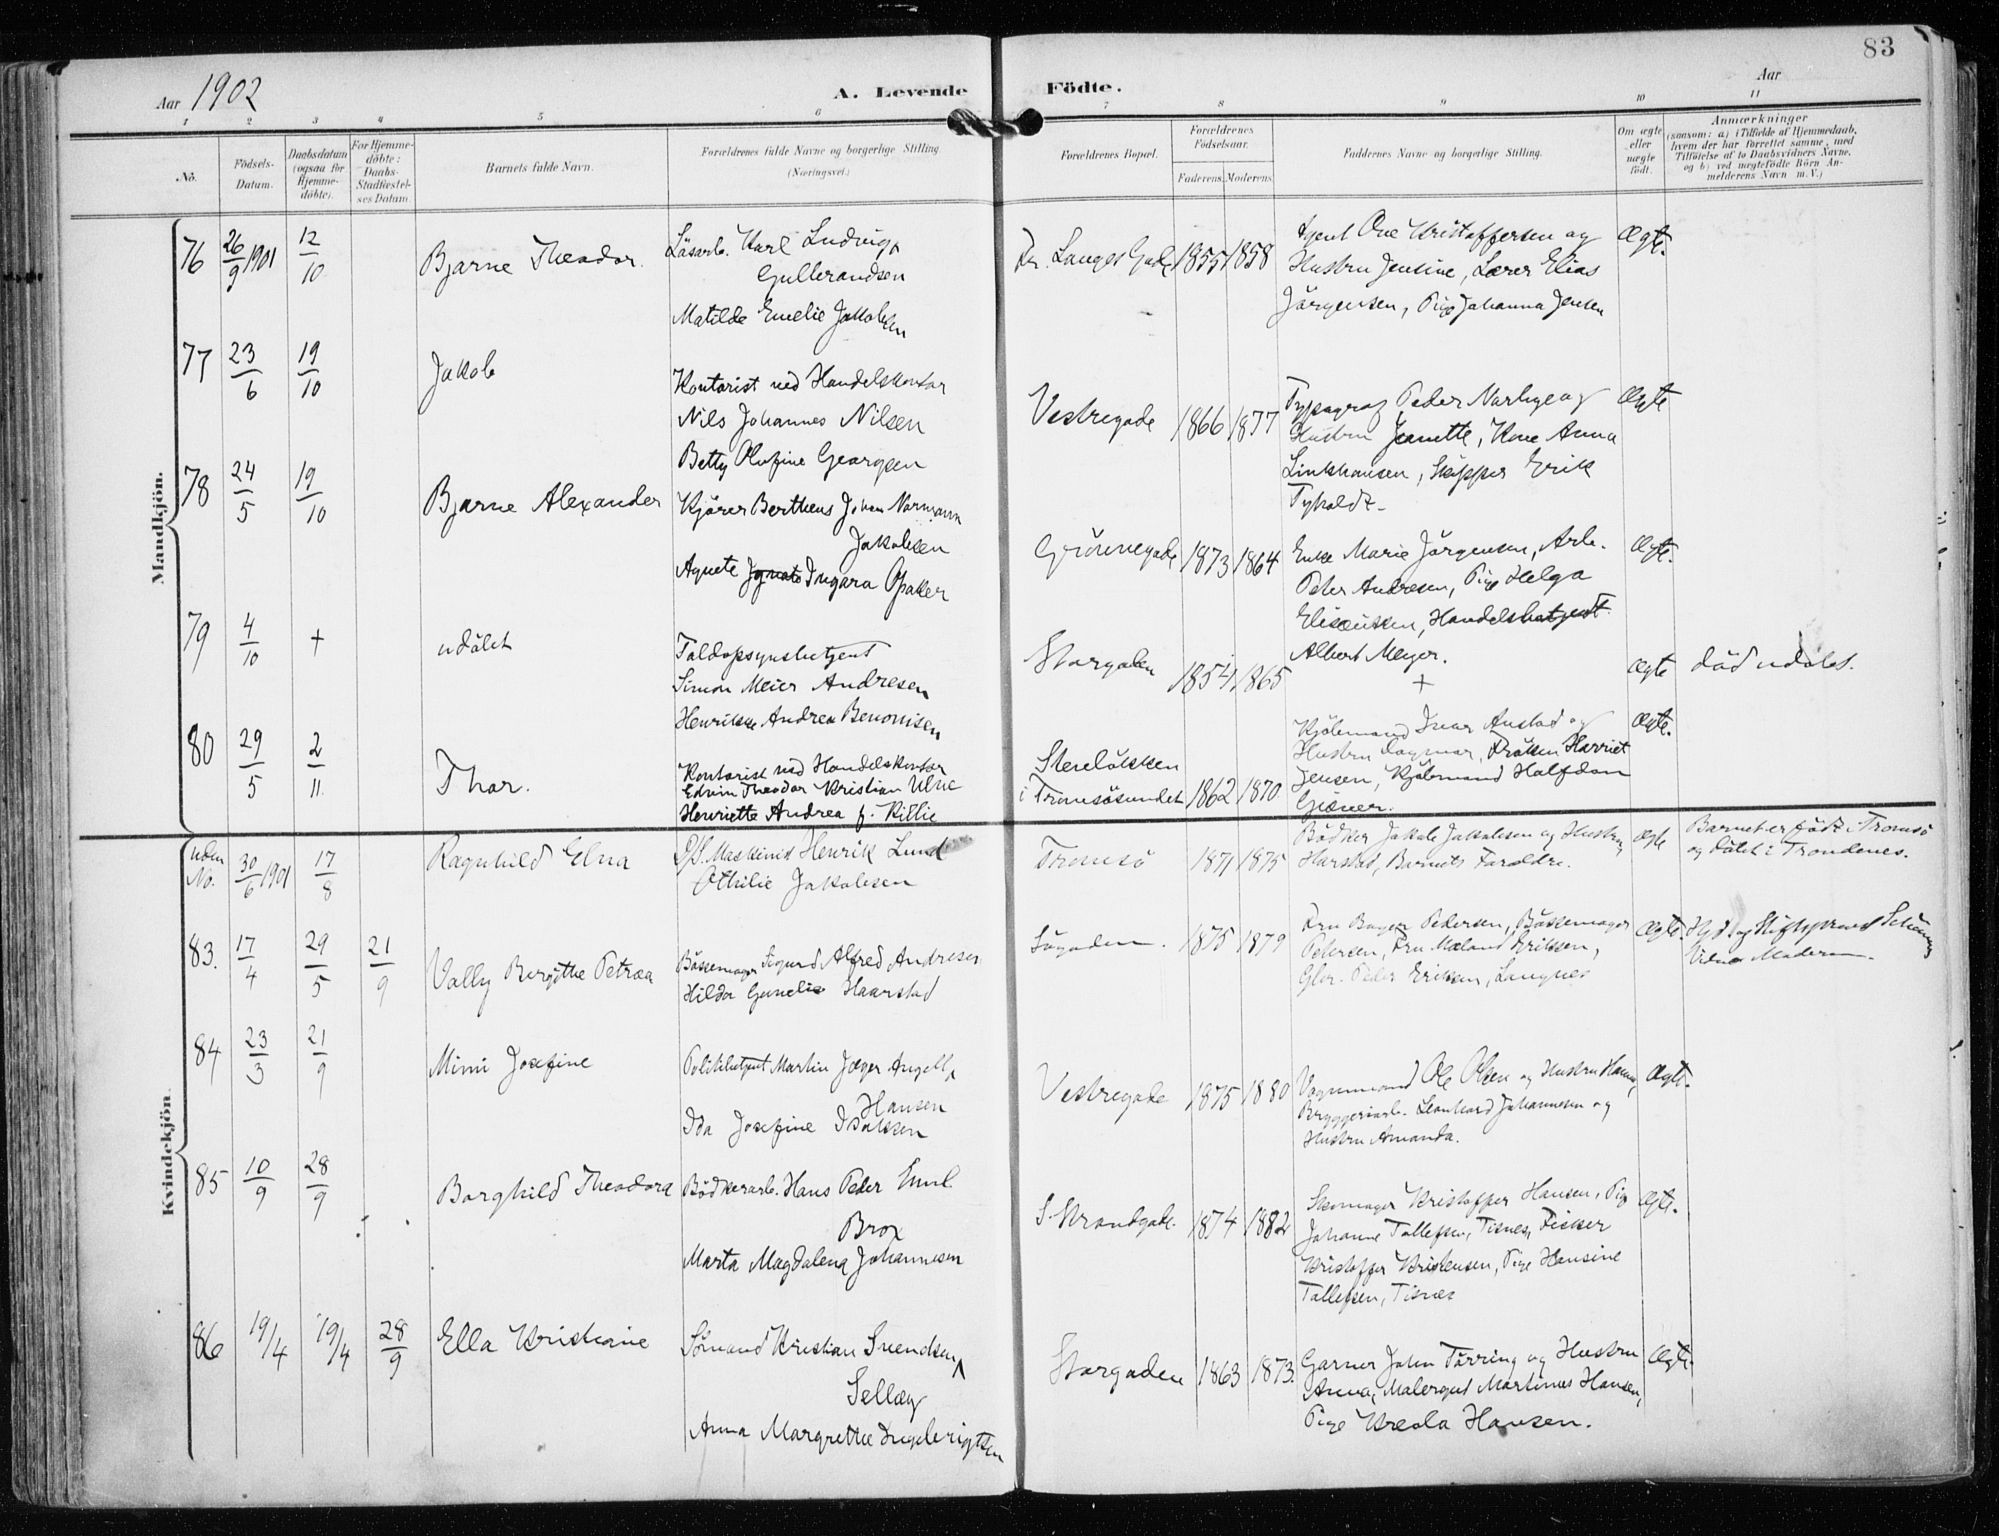 83
Aar 1902
A. Levende Födte.
Aar
1 2 3 4 5 6 7 8 9 10 11
No.
Födsels-Datum.
Daabsdatum (ogsaa for Hjemme-döbte).
For Hjemme-döbte: Daabs-Stadfæstel-ses Datum.
Barnets fulde Navn.
Forældrenes fulde Navne og borgerlige Stilling. (Næringsvei.)
Forældrenes Bopæl.
Forældrenes Födselsaar.
Faderens. Moderens.
Faddernes Navne og borgerlige Stilling.
Om ægte eller uægte födt.
Anmærkninger
(saasom: a) i Tilfælde af Hjemmedaab, hvem der har forrettet samme, med Tilföielse af to Daabsvidners Navne, og b) ved uægtefödte Börn An-melderens Navn m. V.)
Mandkjön.
76 26/9 1901 12/10 Bjarne Theodor. Karl Ludvig
Gullerandsen
Matilde Emelie Jakobsen
Fr. Langes Gade 1855 1858
Agent Ove Kristoffersen og
Hustru Jensine, Lærer Elias
Jörgensen, Pige Johanna Jensen
Ægte.
77 23/6 19/10 Jakob
Kontorist ved Handelskontor
Nils Johannes Nilsen
Betty Olufine Georgsen
Vestregade 1866 1877
Typograf Peder og
Hustru Jeanette, Kone Anna
Linkhausen, Skipper Erik
Ægte
78 24/5 19/10 Bjarne Alexander
Kjörer Bertheus Johan Normann
Jakobsen
Agnete Ingara Opaker
Grönnegade 1873 1864
Enke Marie Jörgensen, Arb.
Peter Andresen, Pige Helga
Albert Meyer.
Ægte.
79 4/10 + udöbt
Toldopsynsbetjent
Simon Meier Andresen
Henrikke Andrea Benonisen
Storgaden 1854 1865
+
Ægte död udöbt.
80 29/5 2/11. Thor.
Kontorist ved Handelskontor
Edvin Theodor Kristian
Henriette Andrea f. Killie
i Tromsösundet 1862 1870
Kjöbmand Ivar og
Hustru Dagmar, Fröken Harriet
Jensen, Kjöbmand Halfdan
Ægte.
Kvindekjön.
uden No. 30/6 1901 17/8 Ragnhild Elna
Maskinist Henrik Lund
Othilie Jakobsen
Tromsö 1871 1875
Bödker Jakob Jakobsen og Hustru,
Harstad, Barnets Forældre.
Ægte
Barnet er födt i Tromsö
og döbt i Trondenes.
83. 17/4 29/5 21/9 Vally Birgithe Petræa
Bössemager Sigurd Alfred Andresen
Hilda Haarstad
Sögaden. 1875 1879
Pedersen, Bössemager
Pedersen, Fru Eriksen,
Peder Eriksen, Langnes
Ægte.
84 23/3 21/9 Mimi Josefine
Politibetjent Martin Jæger Angell
Hansen
Ida Josefine Isaksen
Vestregade 1875 1880
Vognmand Ole Olsen og Hustru Hanna,
Bryggeriarb. Leonhard Johannesen og
Hustru Amanda.
Ægte.
85 10/9 28/9 Borghild Theodora
Bödkerarb. Hans Peder Emil
Brox
Marta Magdalena Johannesen
S. Strandgade. 1874 1882
Skomager Kristoffer Hansen, Pige
Johanne Tollefsen, Tisnes, Fisker
Kristoffer Kristensen, Pige Hansine
Tollefsen, Tisnes
Ægte.
86 19/4 19/4 28/9 Ella Kristiane
Sömand Kristian Svendsen
Sellæg
Anna Margrethe Ingebrigtsen
Storgaden 1863 1873.
Garver John Törring og Hustru
Anna, Martinus Hansen,
Pige Hansen.
Ægte.